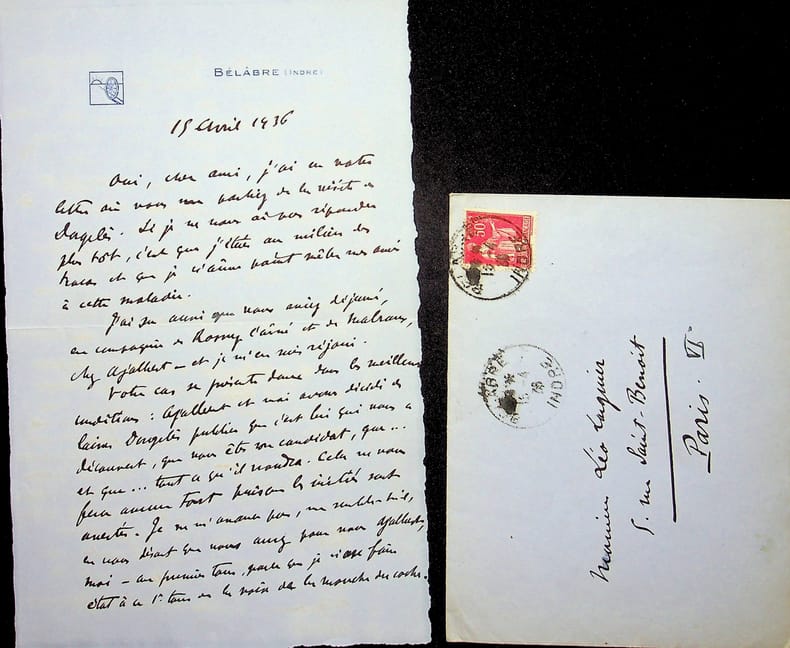 BÉLÂBRE (INDRE)
15 Avril 1936
Oui, cher ami, j'ai eu votre
lettre où vous me parliez de la visite à
Dorgelès. Si je ne vous ai pas répondu
plus tôt, c'est que j'étais au milieu des
tracas et que je n'aime point mêler mes amis
à cette maladie.
J'ai su aussi que vous aviez déjeuné,
en compagnie de Rosny l'aîné et de Malraux,
chez Ajalbert – et je m'en suis réjoui.
Votre cas se présente donc dans les meilleures
conditions : Ajalbert et moi avons décidé de
laisser Dorgelès publier que c'est lui qui vous a
découvert, que vous êtes son candidat, que...
et que... tout ce qu'il voudra. Cela ne vous
fera aucun tort puisque les initiés sont
avertis. Je ne m'avance pas, me semble-t-il,
en vous disant que vous aurez pour vous Ajalbert,
moi – au premier tour, parce que je
état à ce 1er tour de la voix de la mouche du coche.
50
INDRE
INDRE
Monsieur Léo Larguier
5. rue Saint-Benoit
Paris. VI